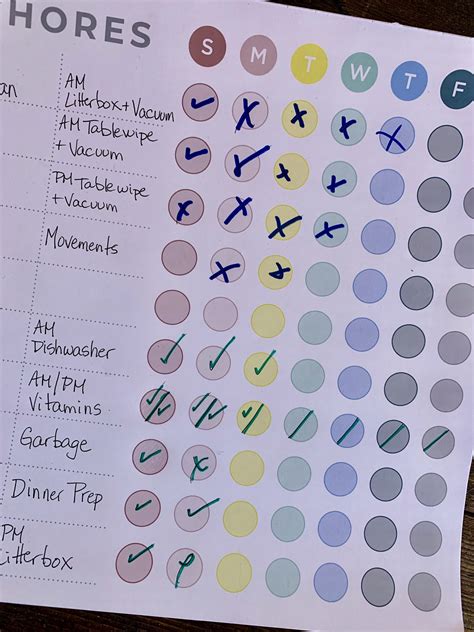 HORES
S M T W T F
AM
an Litterbox + Vacuum
AM Tablewipe
+ Vacuum
PM Tablewipe
+ Vacuum
Movements
AM
Dishwasher
AM/PM
Vitamins
Garbage
Dinner Prep
PM
Litterbox